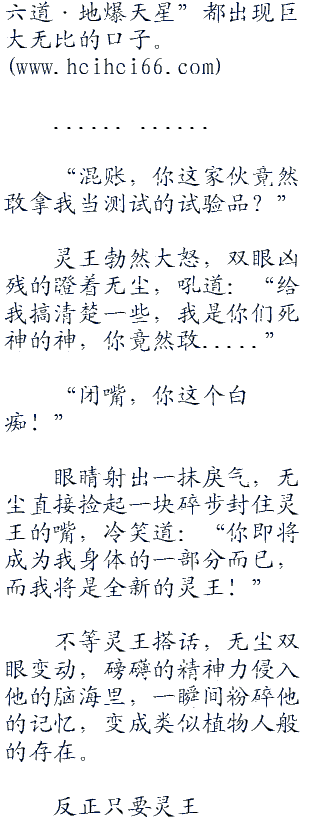 六道·地爆天星”都出现巨
大无比的口子。
(www.hcihci66.com)
...... ......
“混账，你这家伙竟然
敢拿我当测试的试验品？”
灵王勃然大怒，双眼凶
残的蹬着无尘，吼道：“给
我搞清楚一些，我是你们死
神的神，你竟然敢.....”
“闭嘴，你这个白
痴！”
眼睛射出一抹戾气，无
尘直接捡起一块碎步封住灵
王的嘴，冷笑道：“你即将
成为我身体的一部分而已，
而我将是全新的灵王！”
不等灵王搭话，无尘双
眼变动，磅礴的精神力侵入
他的脑海里，一瞬间粉碎他
的记忆，变成类似植物人般
的存在。
反正只要灵王